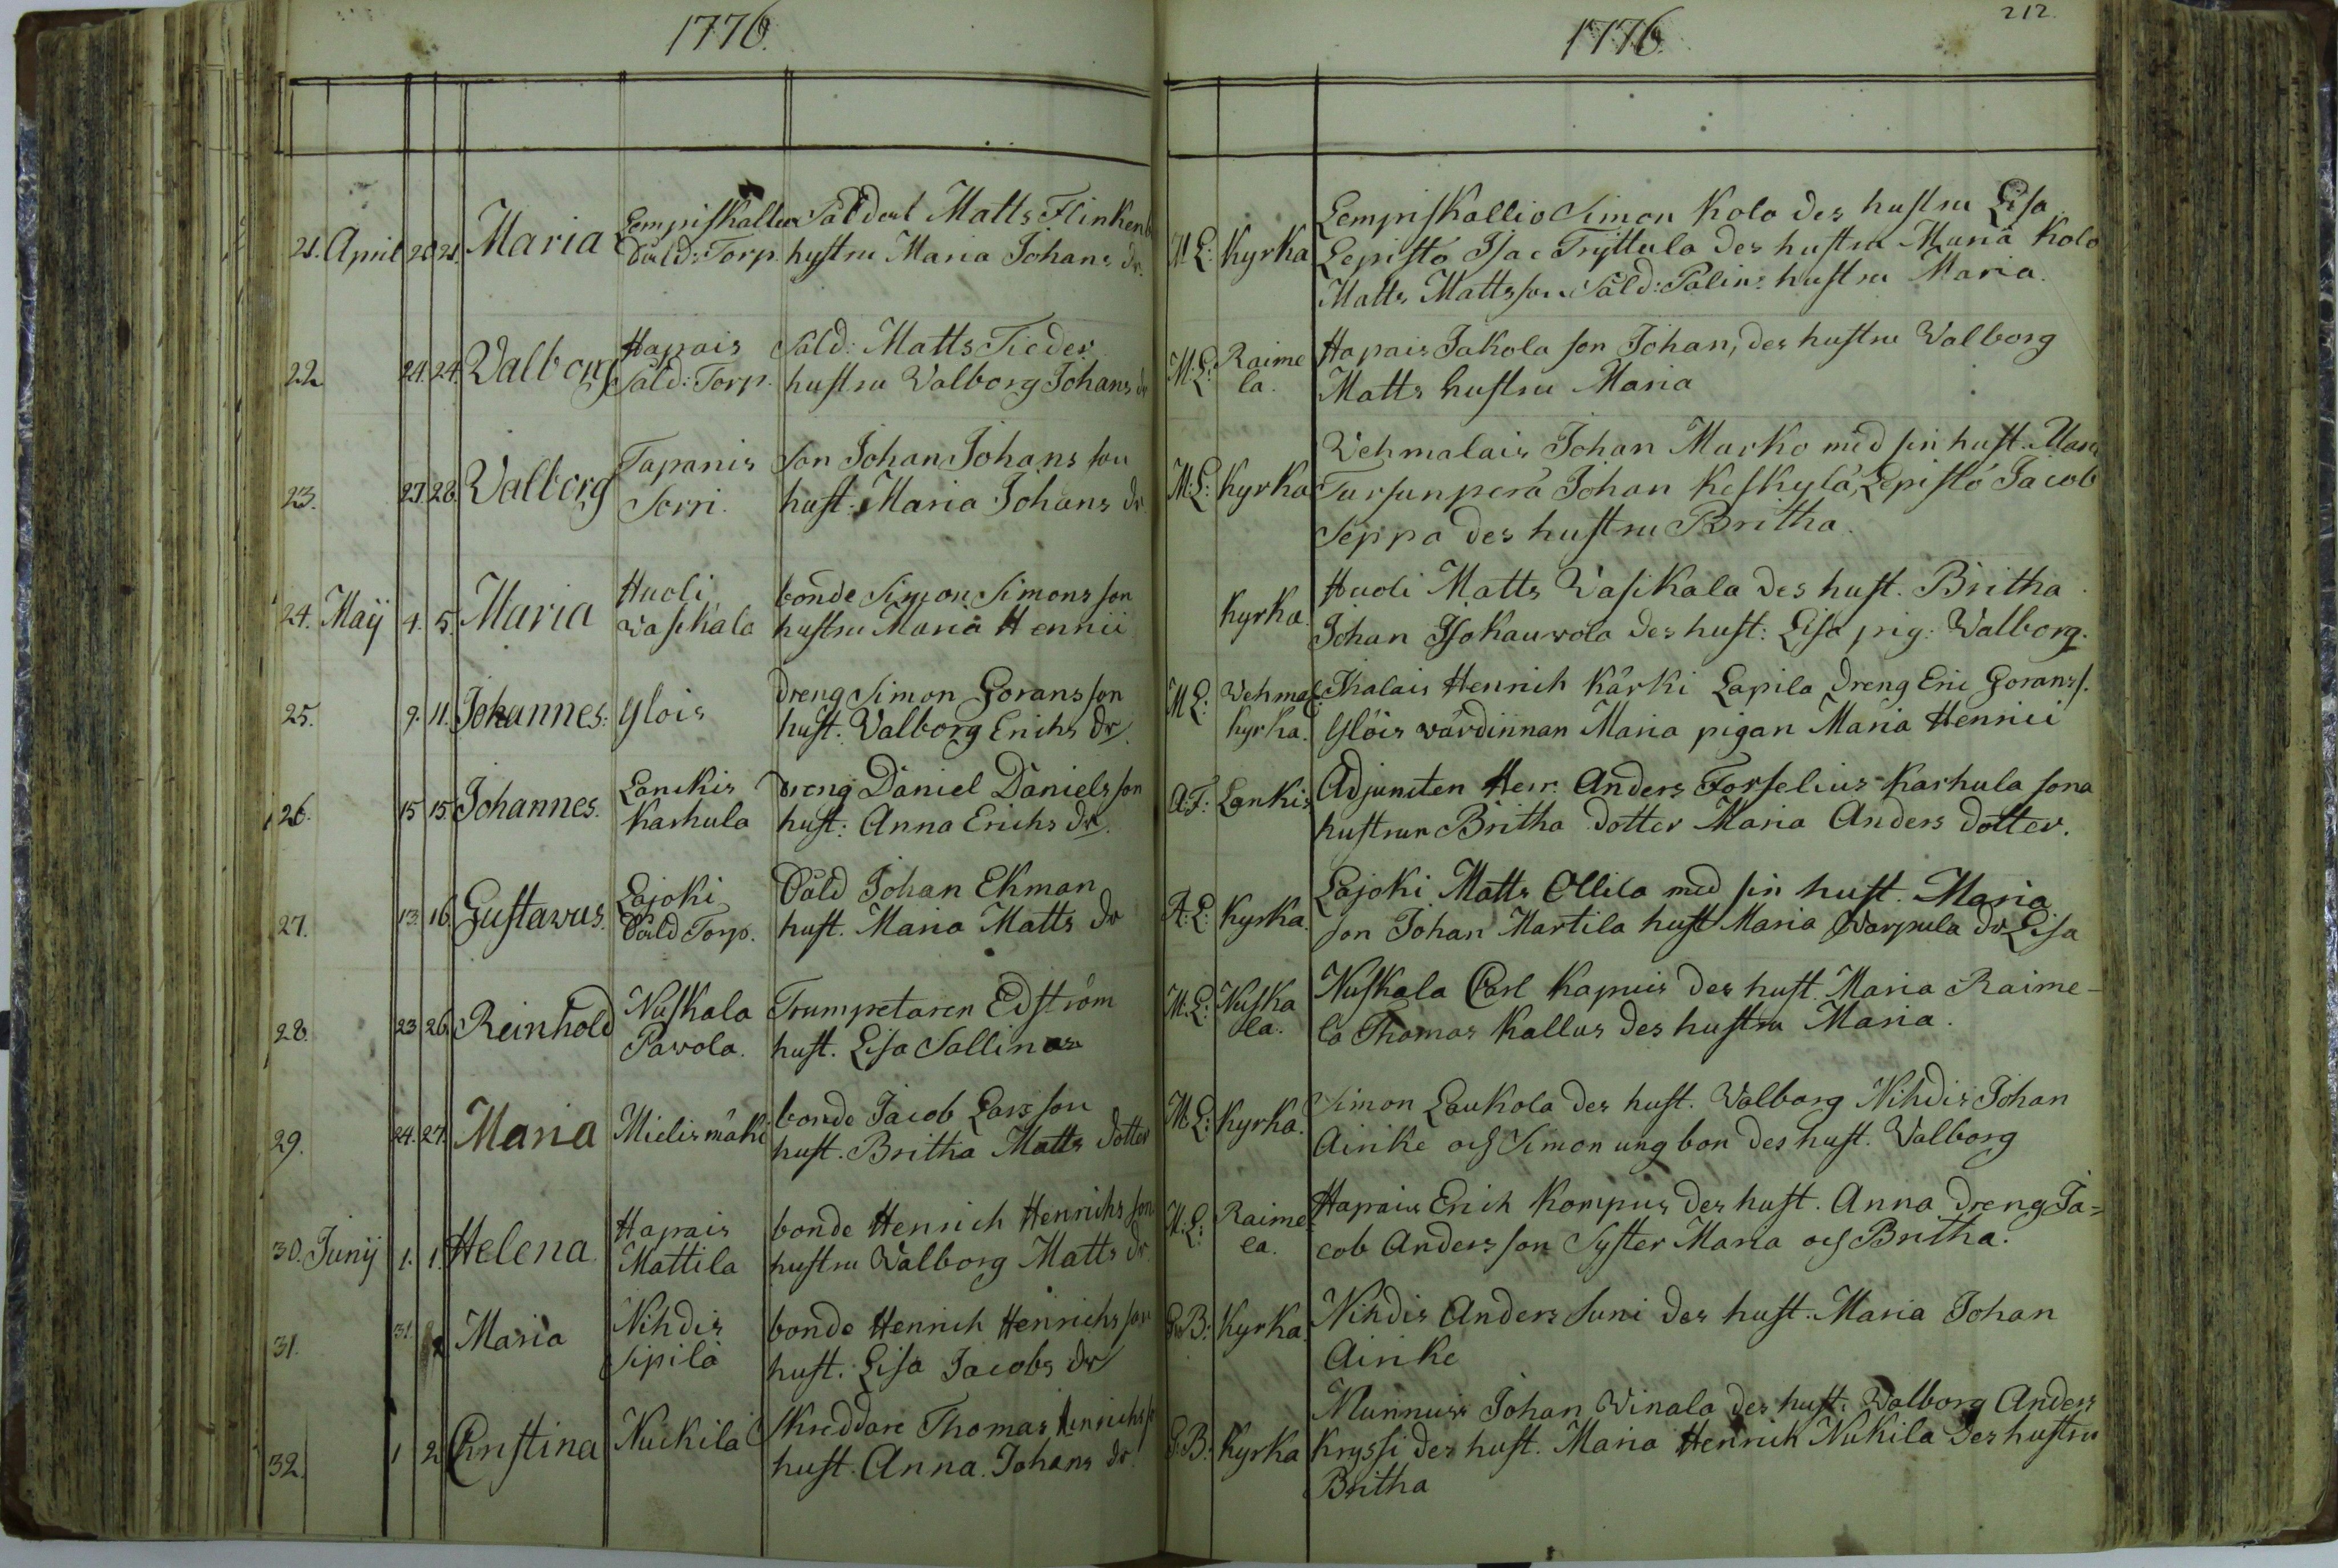 1776.
1776.
212.
21. April 20 21. Maria Lempiskallio Såldat Matts Flinkenb
Såld: Torp. hustru Maria Johans dr.
M. L: Kyrka Lempiskallio Simon Kolo des hustru Lisa
Lepistö Isac Tryttula des hustru Maria Kolo
Matts Mattsson Såld: Palins hustru Maria.
22 24. 24. Valborg Hapais Såld: Matts Tieder
Såld: Torp. hustru Valborg Johans dr
M. L: Raime
la.
Hapais Jakola son Johan, des hustru Valborg
Matts hustru Maria
23. 27. 28. Valborg Tapanis Son Johan Johans son
Sorri. hust: Maria Johans dr.
M: L: Kyrka
Vehmalais Johan Marko med sin hust. Maria
Tursunperä Johan Keskylä, Lepistö Jacob
Seppa des hustru Britha.
24. Maÿ 4. 5. Maria Huoli bonde Simon Simons son
Wasikala hustru Maria Hennii
Kyrka.
Huoli Matts Wasikala des hust. Britha
Johan Isokauvola des hust: Lisa pig: Valborg.
25. 9. 11. Johannes. Ylöis dreng Simon Görans son
hust. Valborg Erichs dr.
M L: Wehmal:
kyrka.
Ihalais Henrich Kärki Lapila dreng Eric Görans s.
Ylöis värdinnan Maria pigan Maria Hennici
26. 15 15. Johannes. Lanckis dreng Daniel Daniels son
Karhula hust: Anna Erichs dr.
A: F: Lankis
Adjuncten Herr. Anders Forselius Karhula sona
hustrun Britha dotter Maria Anders dotter.
27. 13. 16. Gustavus. Lajoki Såld Johan Ekman
Såld Torp. hust. Maria Matts dr
A: L: Kyrka.
Lajoki Matts Ollila med sin hust. Maria
son Johan Martila hust Maria Warpula dr Lisa
28. 23 26. Reinhold Nuskala Trumpetaren Edström
Pavola. hust. Lisa Sallinas
M: L: Nuska
la.
Nuskala Carl Kapuis des hust. Maria Raime-
la Thomas Kallus des hustru Maria.
29. 24. 27. Maria Mielismäki bonde Jacob Lars son
hust. Britha Matts dotter
M. L: Kyrka.
Simon Laukola des hust. Valborg Nihdis Johan
Ainike och Simon ung bon des hust. Valborg
30. Junÿ 1. 1. Helena. Hapais bonde Henrich Henrichs son
Mattila hustru Valborg Matts dr.
M: L: Raime
la.
Hapais Erich Kompus des hust. Anna dreng Ja=
cob Anders son Syster Maria och Britha.
31. 31. 2 Maria Nihdis bonde Henrich Henrichs son
Sipilä hust: Lisa Jacobs dr
G. B: Kyrka.
Nihdis Anders Suni des hust. Maria Johan
Ainike
32. 1 2 Christina Nuckila Skreddare Thomas Henrichs s
hust. Anna. Johans dr.
G. B: Kyrka
Munnuis Johan Vinala des hust. Valborg Anders
Kryssi des hust. Maria Henrich Nukila des hustru
Britha